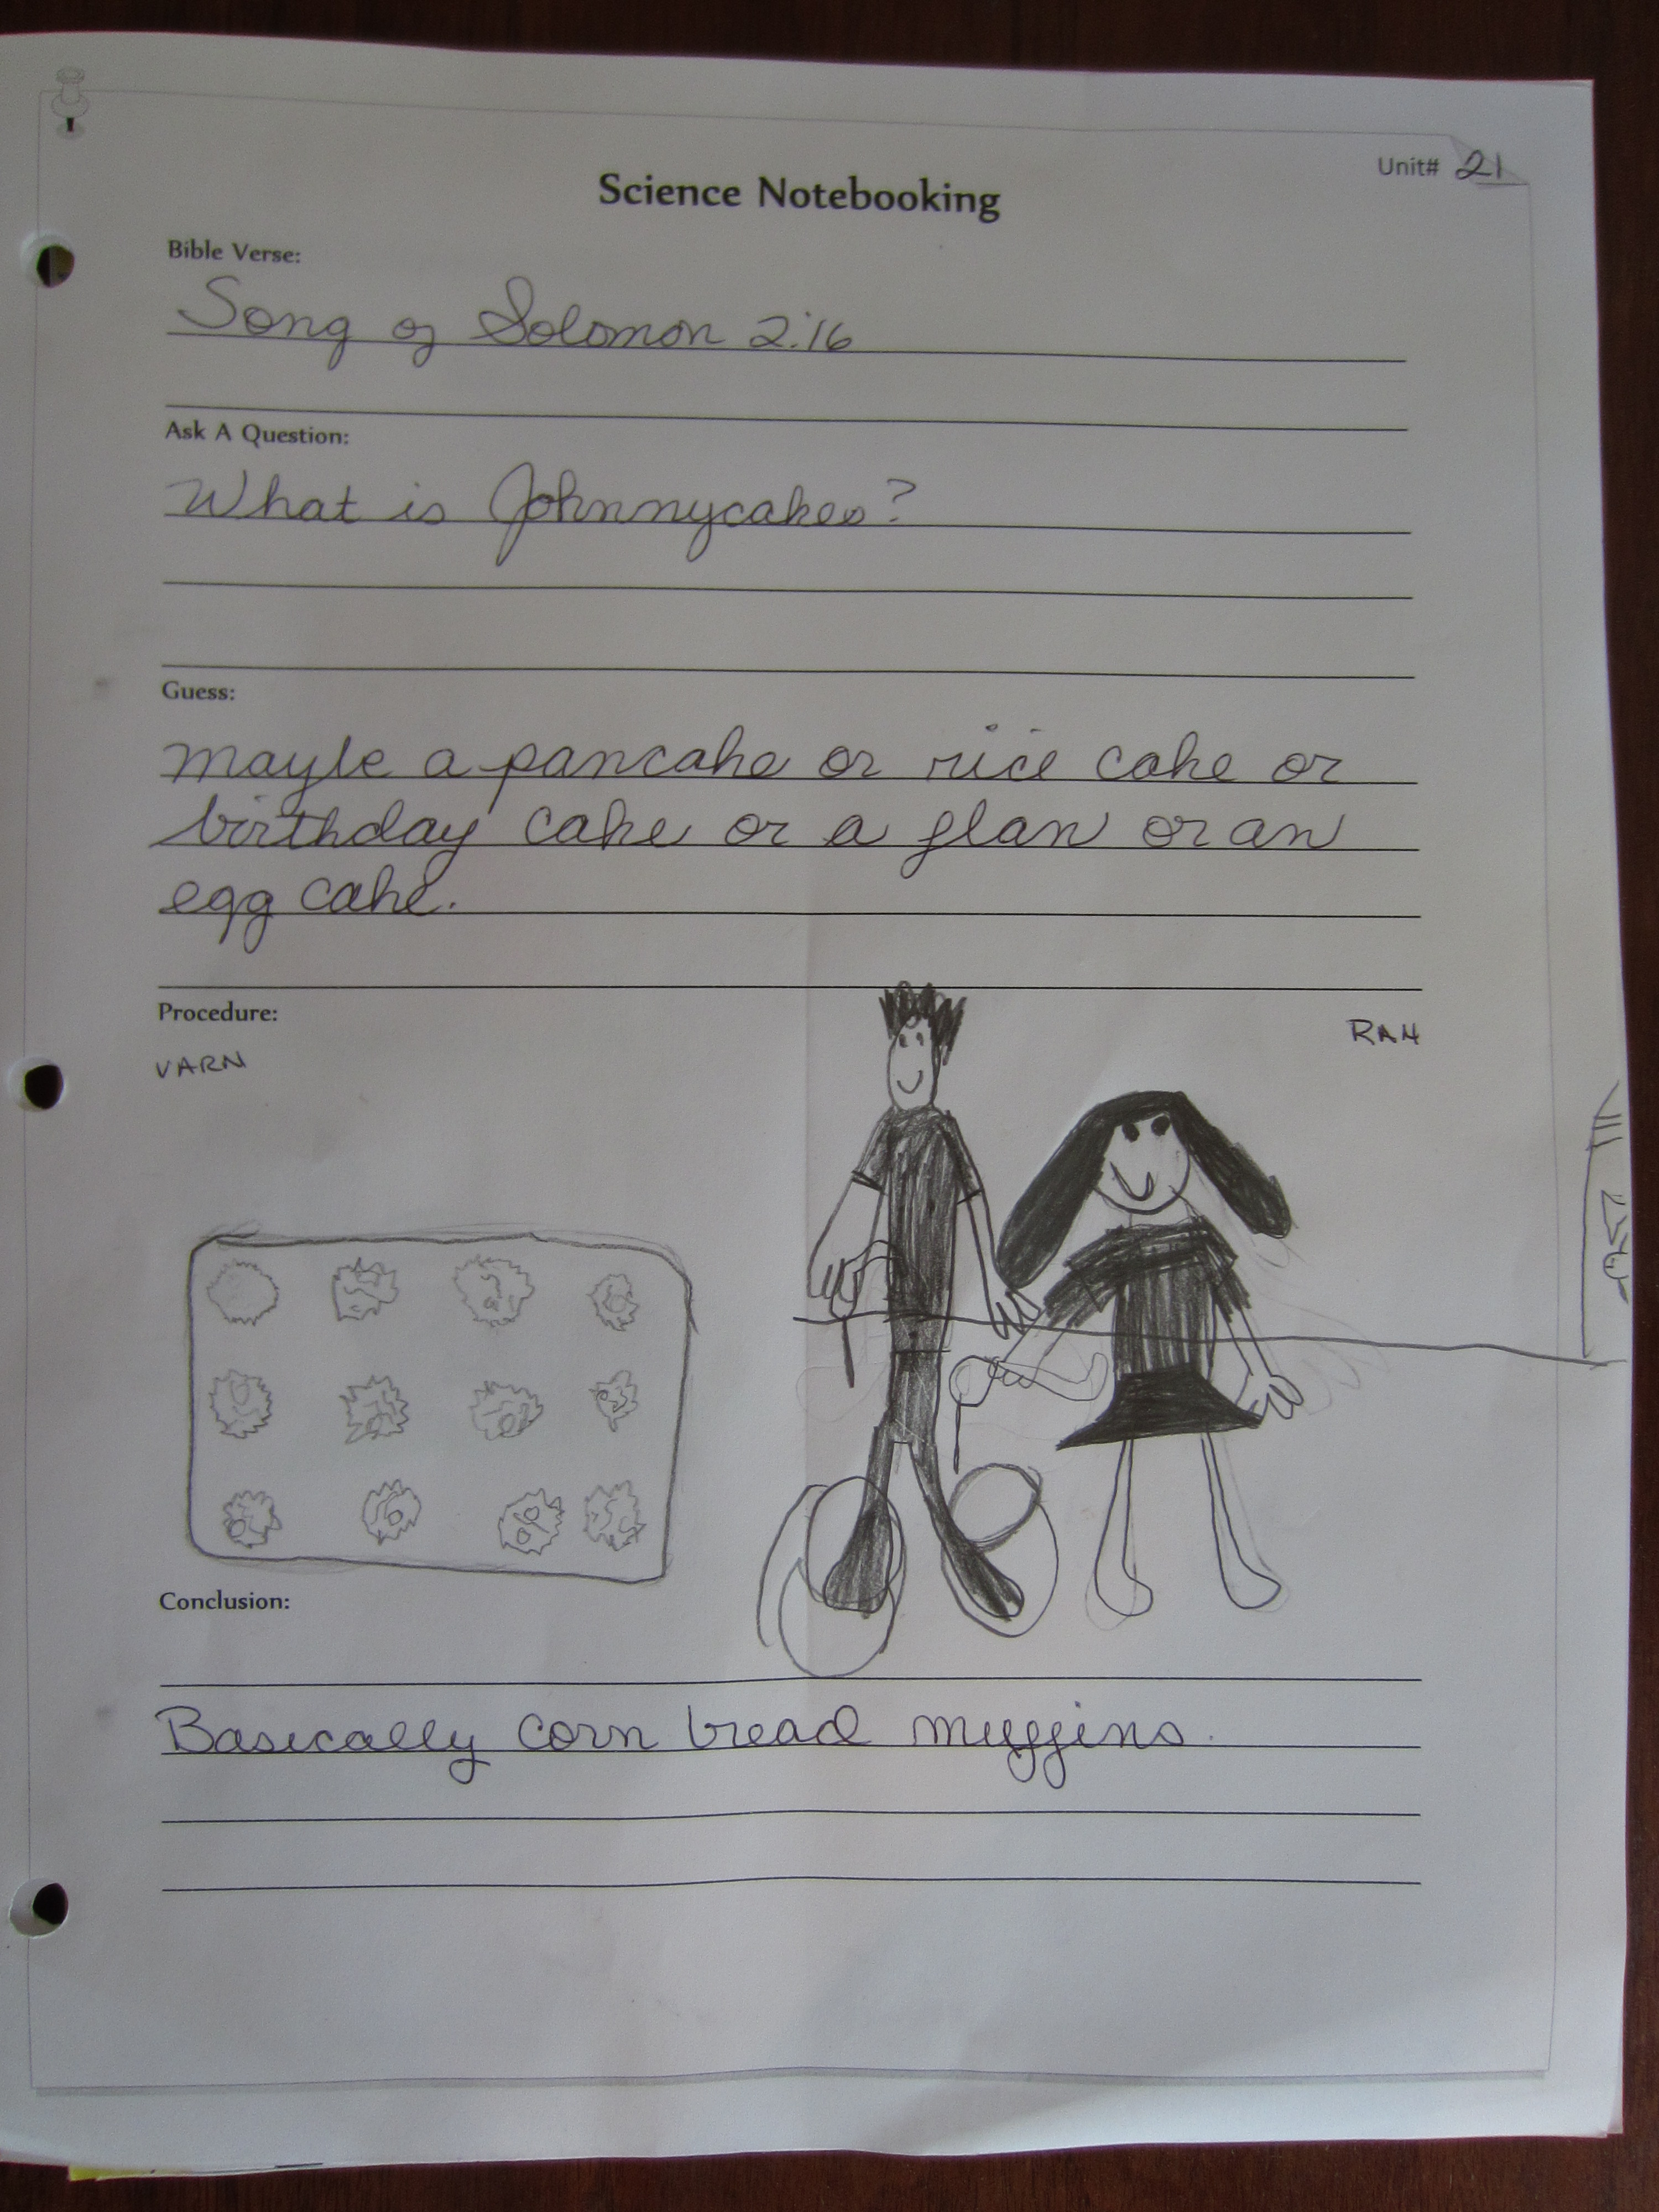 Unit# 21
Science Notebooking
Bible Verse:
Song of Solomon 2:16
Ask A Question:
What is Johnnycakes?
Guess:
maybe a pancake or rice cake or
birthday cake or a flan or an
egg cake.
Procedure:
VARN
RAH
Conclusion:
Basically corn bread muffins.